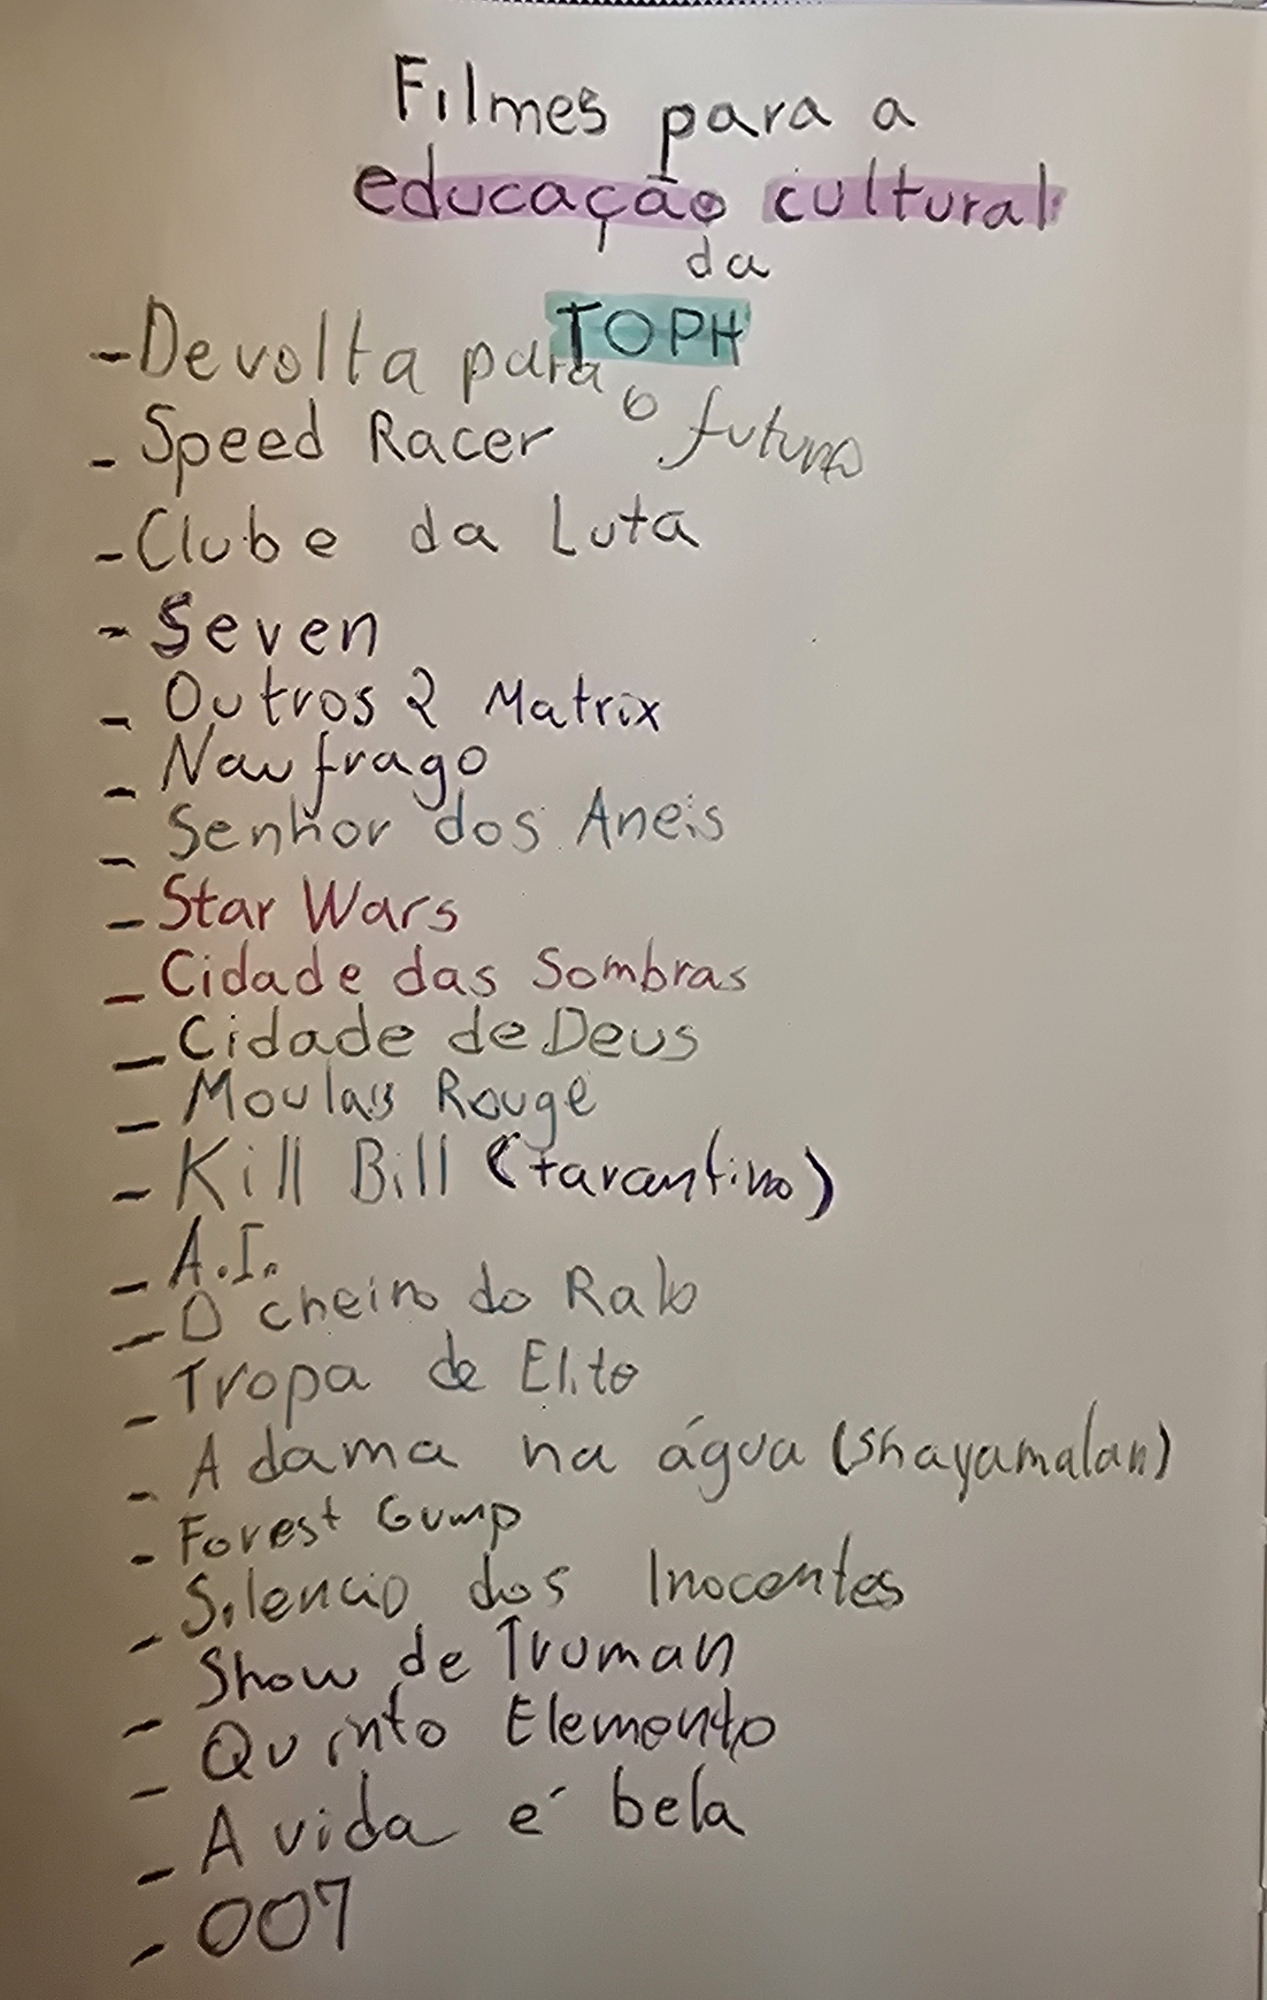 Filmes para a
educação cultural
da
TOPH
- De volta para o futuro
- Speed Racer
- Clube da Luta
- Seven
- Outros 2 Matrix
- Naufrago
- Senhor dos Aneis
- Star Wars
- Cidade das Sombras
- Cidade de Deus
- Rouge
- Kill Bill (tarantino)
- A.I.
- O cheiro do Ralo
- Tropa de Elite
- A dama na água (Shayamalan)
- Forest Gump
- Silencio dos Inocentes
- Show de Truman
- Quinto Elemento
- A vida é bela
- 007